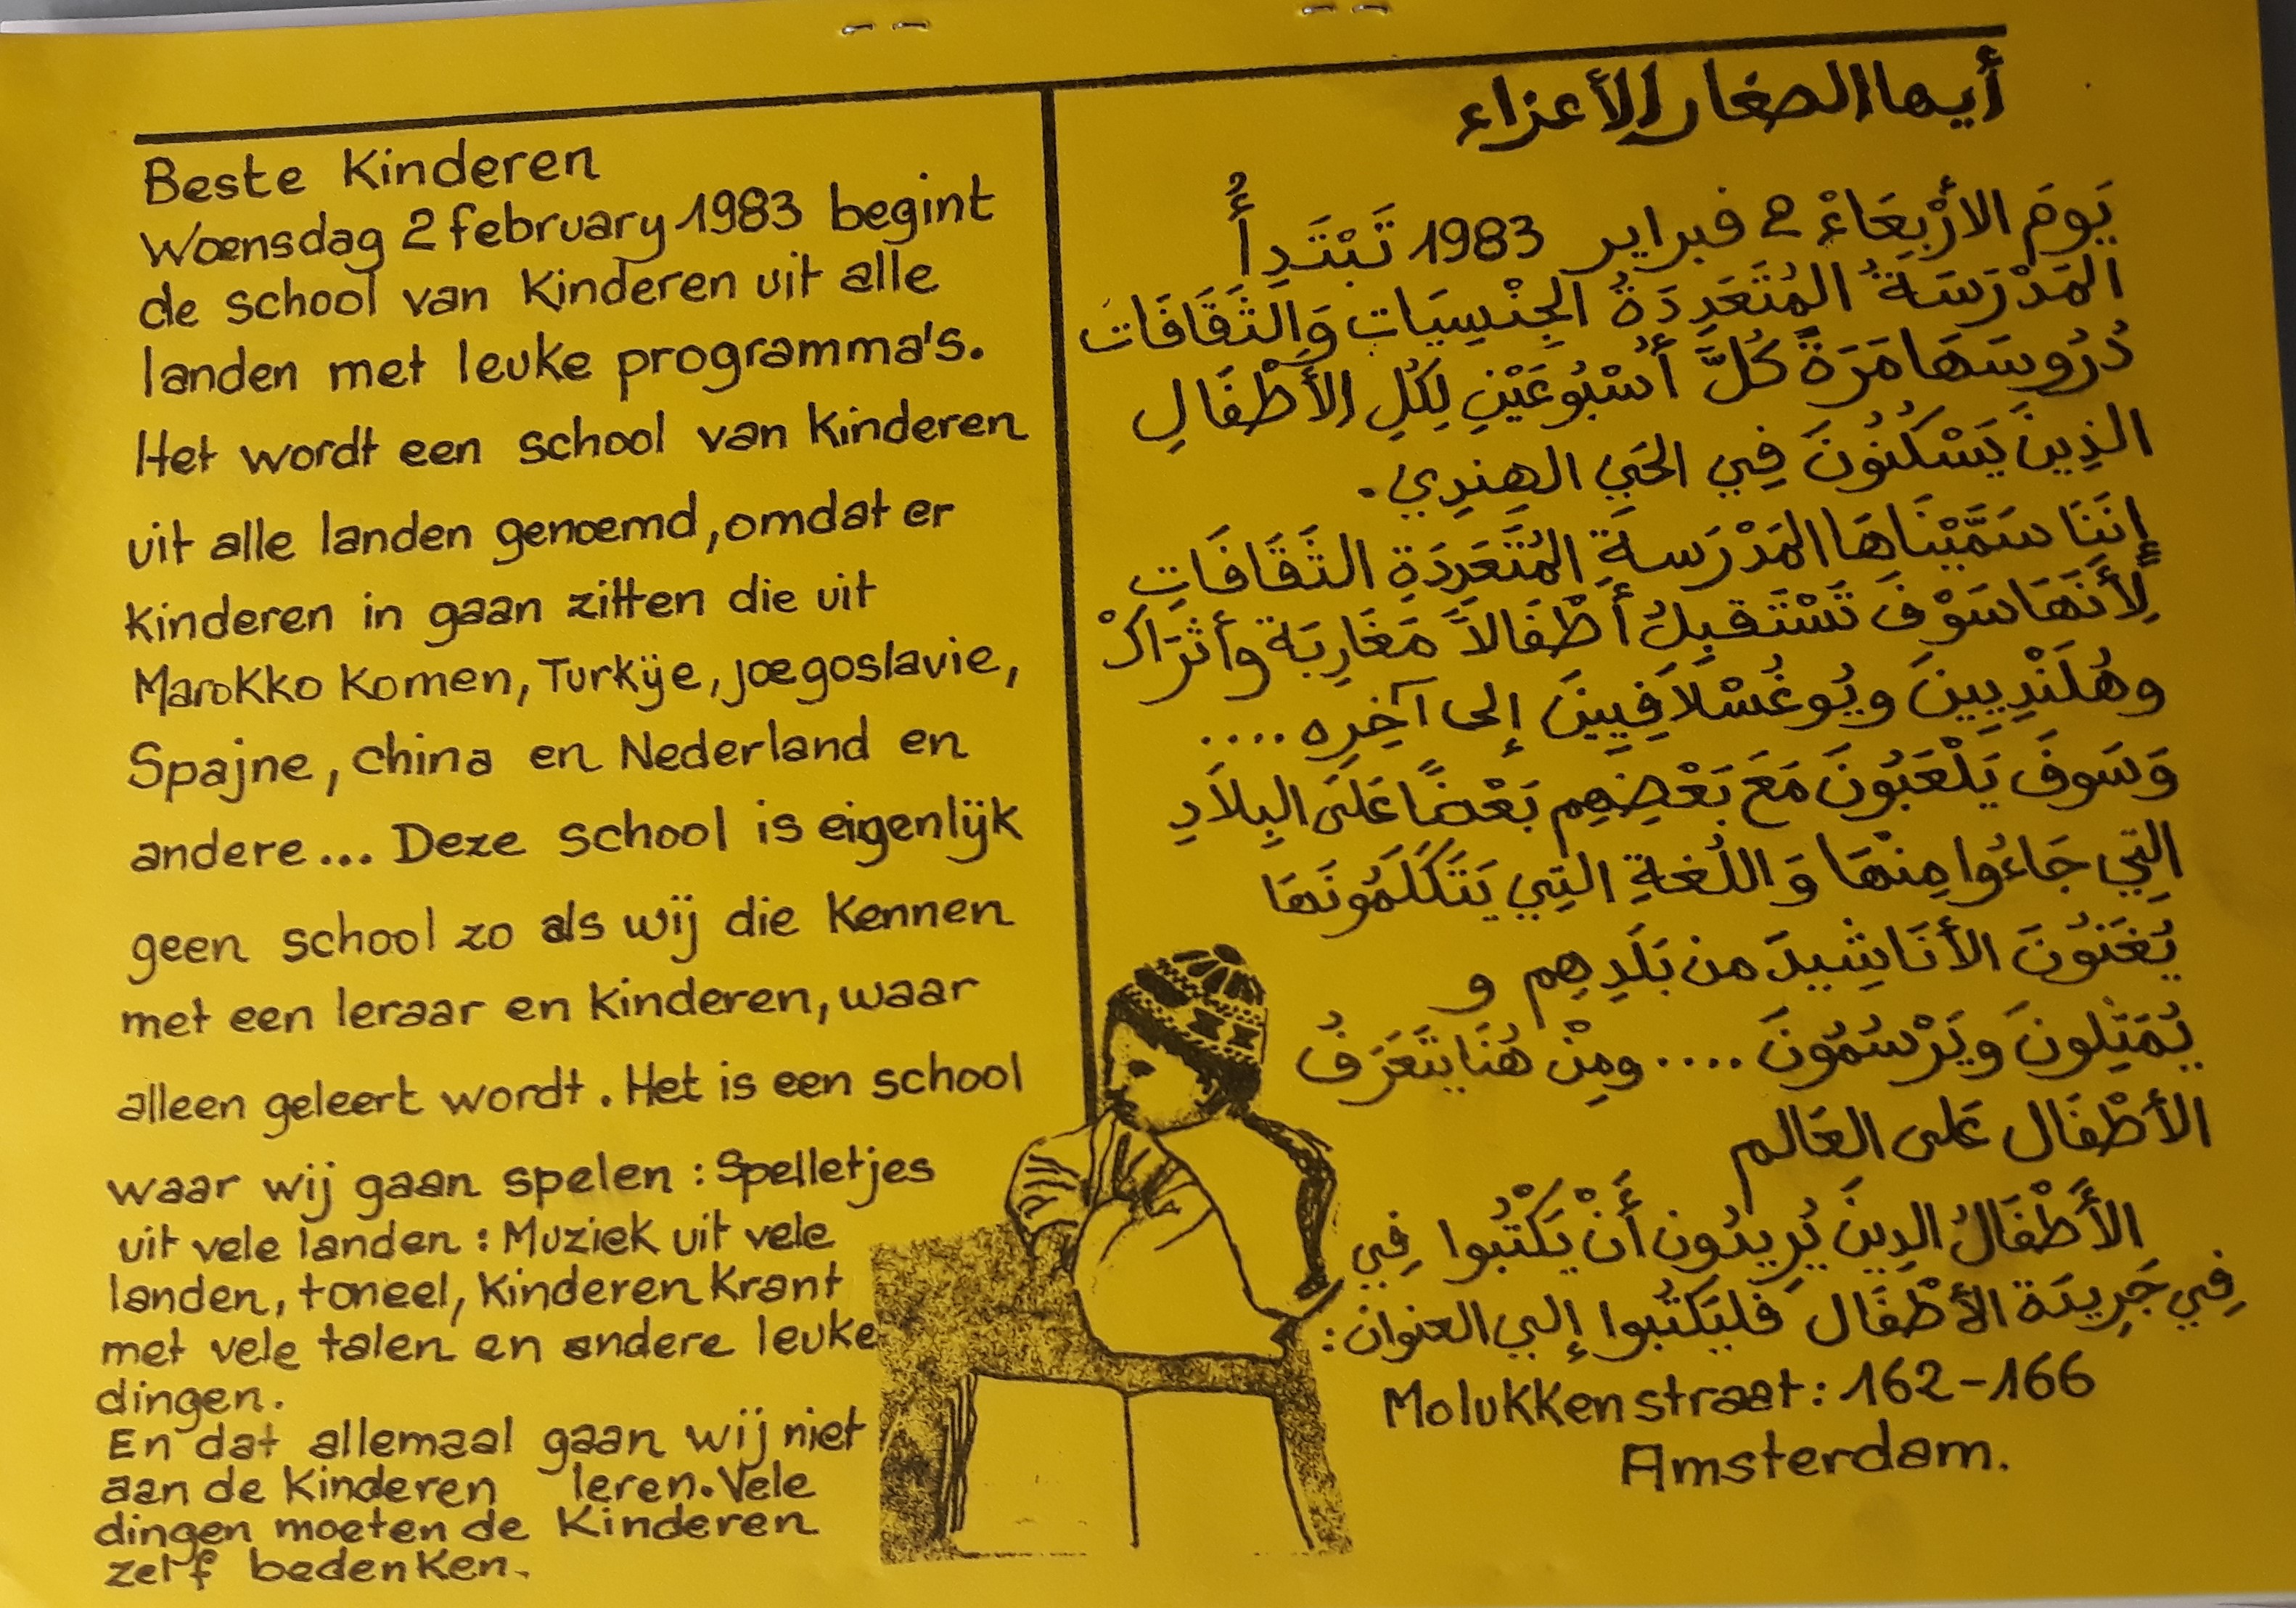 Beste Kinderen
Woensdag 2 february 1983 begint
de school van Kinderen uit alle
landen met leuke programma's.
Het wordt een school van kinderen
uit alle landen genoemd, omdat er
kinderen in gaan zitten die uit
Marokko komen, Turkije, joegoslavie,
Spajne, china en Nederland en
andere... Deze school is eigenlijk
geen school zo als wij die Kennen
met een leraar en kinderen, waar
alleen geleert wordt. Het is een school
waar wij gaan spelen : Spelletjes
uit vele landen : Muziek uit vele
landen, toneel, kinderen krant
met vele talen en andere leuke
dingen.
En dat allemaal gaan wij niet
aan de Kinderen leren. Vele
dingen moeten de Kinderen
zelf bedenken.
أيها الصغار الأعزاء
يَومَ الارْبِعَاءْ 2 فبراير 1983 تَبْتَدِأُ
المَدْرَسَةُ المُتَعَدِدَةُ الجِنْسِيَاتِ وَالثَقَافَات
دُرُوسَهَا مَرَةً كُلَّ أُسْبُوعَيْنِ لِكُلِ الأَطْفَالِ
الذِينَ يَسْكُنُونَ فِي الحَيِ الهِنِدِي.
إنَنَا سَمَّيْنَاهَا المَدْرَسةِ المُتَعَدِدَةِ الثَقَافَاتِ
لِأَنَهَا سَوْفَ تَسْتَقبِلُ أَطْفَالاً مَغَارِبَة وأثرَاكْ
وهُلَنْدِيينَ ويُوغُسْلاَفِيينَ إلى آخِرِه ....
وَسَوفَ يَلْعَبُونَ مَعَ بَعْضِهِم بَعْضًا عَلَى البِلاَدِ
التِي جَاءُوا مِنْهَا وَاللُغةِ التِي يَتَكَلَمُونَهَا
يُغَنُونَ الأنَاشِيدَ من بَلَدِهِم و
يُمَثِلونَ ويَرْسُمُونَ .... ومِنْ هُنَا يَتَعَرَفُ
الأطْفَال عَلى العَالم
الأَطْفَالُ الدِينَ يُرِيدُون أَنْ يَكْتُبوا فِي
فِي جَرِيدَة الأطْفَال فَليَكتُبوا إلي العنوان:
Molukkenstraat: 162-166
Amsterdam.